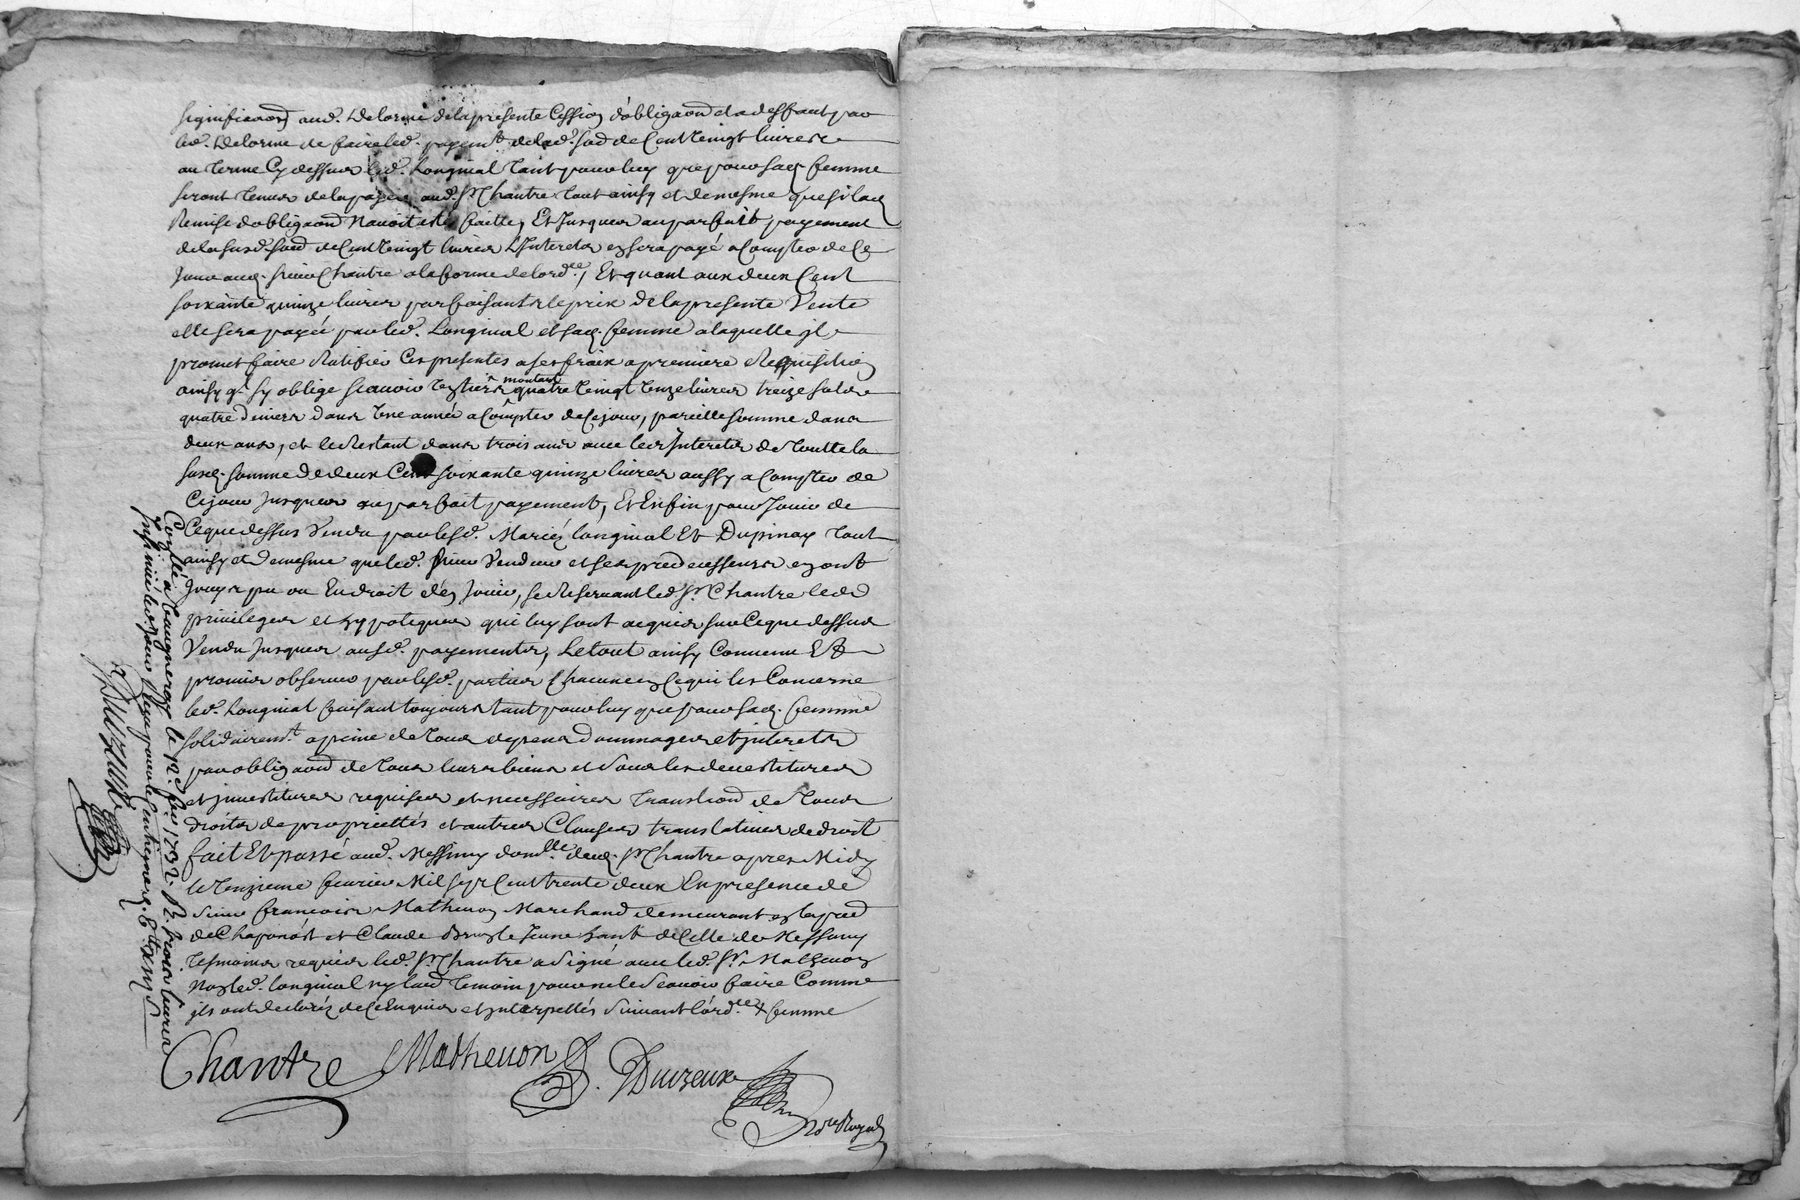 significaõn aud. Delorme de la presente Cession d'obligaõn et a deffaut par
led. Delorme de faire led. payemt. de lad. sõe de Cent vingt livres
au terme Cy dessus led. Longinal tant pour luy que pour sad. femme
seront tenus de la payer aud. Sr. Chantre tout ainsy et de mesme que si lad.
Remise d'obligaõn n'avoit esté faitte, Et Jusques au parfait payement
de la susd. sõe de Cent vingt livres L'Interets en sera payé a Compter de Ce
Jour aud. sieur Chantre a la forme de lordce, Et quant aux deux Cent
soixante quinze livres parfaisants le prix de la presente Vente
elle sera payée par led. Longinal et sad. femme a laquelle il
promet faire Ratifier Ces presentes a ses fraix a premiere Requisition
ainsy q. sy oblige scavoir un tiers montant quatre vingt unze livres treize sols
quatre deniers dans Une année a Compter de Ce jour, pareille somme dans
deux ans, et le Restant dans trois ans avec les Interets de toutte la
susd. somme de deux Cent soixante quinze livres aussy a Compter de
Ce jour Jusques au parfait payement, Et Enfin pour Jouir de
Ce que dessus Vendu par lesd. Mariés Longinal Et Dupinay tout
ainsy et de mesme que led. sieur Vendeur et ses predecesseurs en ont
Jouy pu ou Eu droit d'en Jouir, se Reservant led. Sr. Chantre les
privileges et hypoteques qui luy sont acquis sur Ce que dessus
Vendu Jusques ausd. payements, Le tout ainsy Convenu Et
promis observer par lesd. parties Chacune en Ce qui les Concerne
led. Longinal faisant toujours tant pour luy que pour sad. femme
solidairemt. a peine de tous depens dommages et interets
par obligaõn de tous leurs biens et sous les devestitures
et investitures requises et necessaires translaõn de tous
droits de proprietés et autres Clauses translatives de droit
fait Et passé aud. Messimy domlle. dud. Sr Chantre apres Midy
le unzieme fevrier Mil sept Cent trente deux En presence de
sieur francois Mathevon Marchand demeurant en la par.
de Chaponost et Claude Brun le Jeune hant. de Celle de Messimy
tesmoins requis led. Sr. Chantre a Signé avec led. Sr. Mathevon
Non led. Longinal ny laud. temoin pour ne le Scavoir faire Comme
ils ont declarés de Ce Enquis et interpellés Suivant l'ordce + femme
Chantre Mathevon Duizeux
Nore Royal
Conllé a Vaugneray le 12e. fev. 1732. R. trois livres
Insinué led. jour